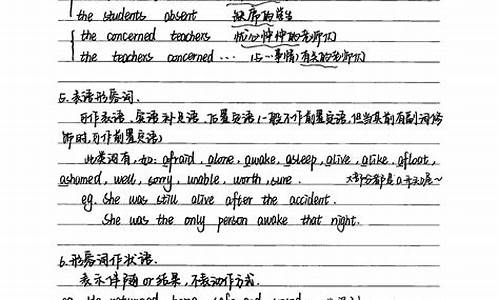 the students absent 缺席的学生
the concerned teachers 忧心忡忡的老师们
the teachers concerned … (与…事情)有关的老师们
5. 表语形容词.
可作表语、宾语补足语、后置定语(一般不作前置定语,但当其前有副词修
饰时,可作前置定语)
此类词有,如: afraid, alone, awake, asleep, alive, alike, afloat,
ashamed, well, sorry, unable, worth, sure. 大部分都是a开头哒~
eg. She was still alive after the accident.
She was the only person awake that night.
6. 形容词作状语.
表示伴随or结果,不表动作方式.
eg. He returned home, safe and